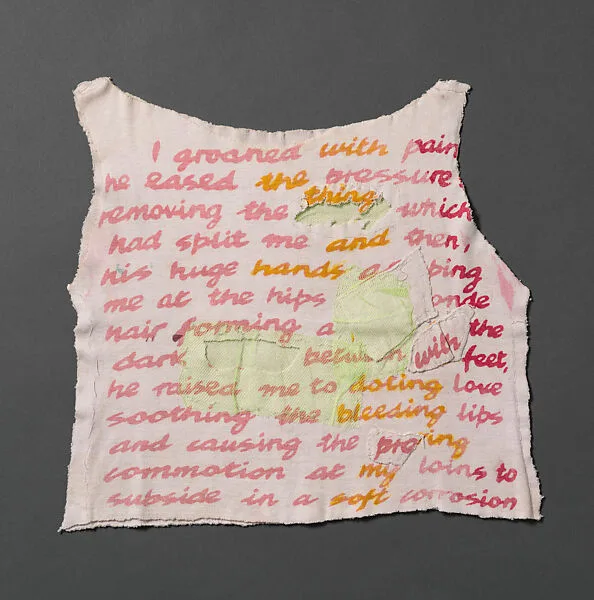 I groaned with pain
he eased the pressure
removing the thing which
had split me and then,
his huge hands ping
me at the hips onde
hair forming a the
dark betw n with feet,
he raised me to doting love
soothing the bleeding lips
and causing the pro ing
commotion at my loins to
subside in a soft corrosion